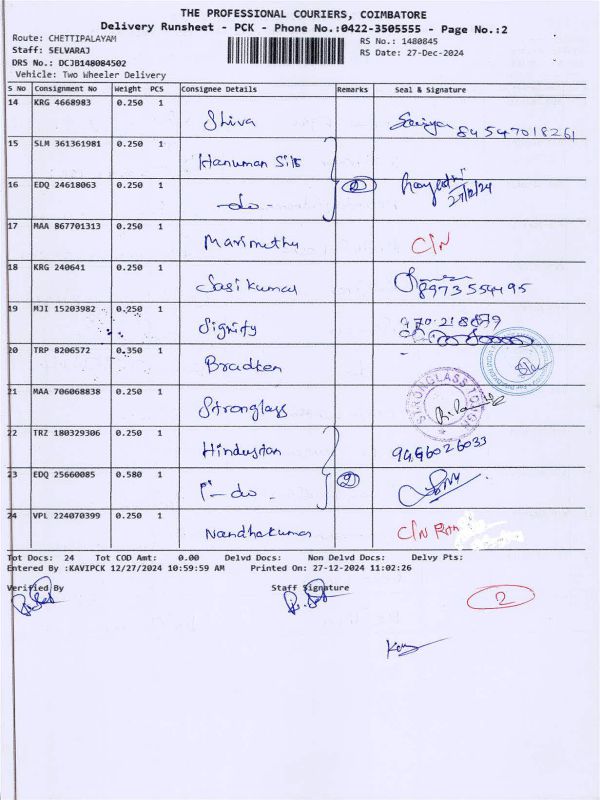 THE PROFESSIONAL COURIERS, COIMBATORE
Delivery Runsheet - PCK - Phone No.:0422-3505555 - Page No.:2
Route: CHETTIPALAYAM
RS No.: 1480845
Staff: SELVARAJ
RS Date: 27-Dec-2024
DRS No.: DCJB148084502
Vehicle: Two Wheeler Delivery
S No Consignment No Weight PCS Consignee Details Remarks Seal & Signature
14 KRG 4668983 0.250 1 Shiva 84547018261
15 SLM 361361981 0.250 1 Hanuman Silk
16 EDQ 24618063 0.250 1 -do- 2 27/12/24
17 MAA 867701313 0.250 1 Marimuthu C/N
18 KRG 240641 0.250 1 Sasi kumar 8973554495
19 MJI 15203982 0.250 1 Signify
20 TRP 8206572 0.350 1 Bradken
21 MAA 706068838 0.250 1 Stronglass STRONGLASS
22 TRZ 180329306 0.250 1 Hindustan 9496026033
23 EDQ 25660085 0.580 1 -do- 2
24 VPL 224070399 0.250 1 Nandhakumar C/N
Tot Docs: 24 Tot COD Amt: 0.00 Delvd Docs: Non Delvd Docs: Delvy Pts:
Entered By :KAVIPCK 12/27/2024 10:59:59 AM Printed On: 27-12-2024 11:02:26
Verified By Staff Signature
2